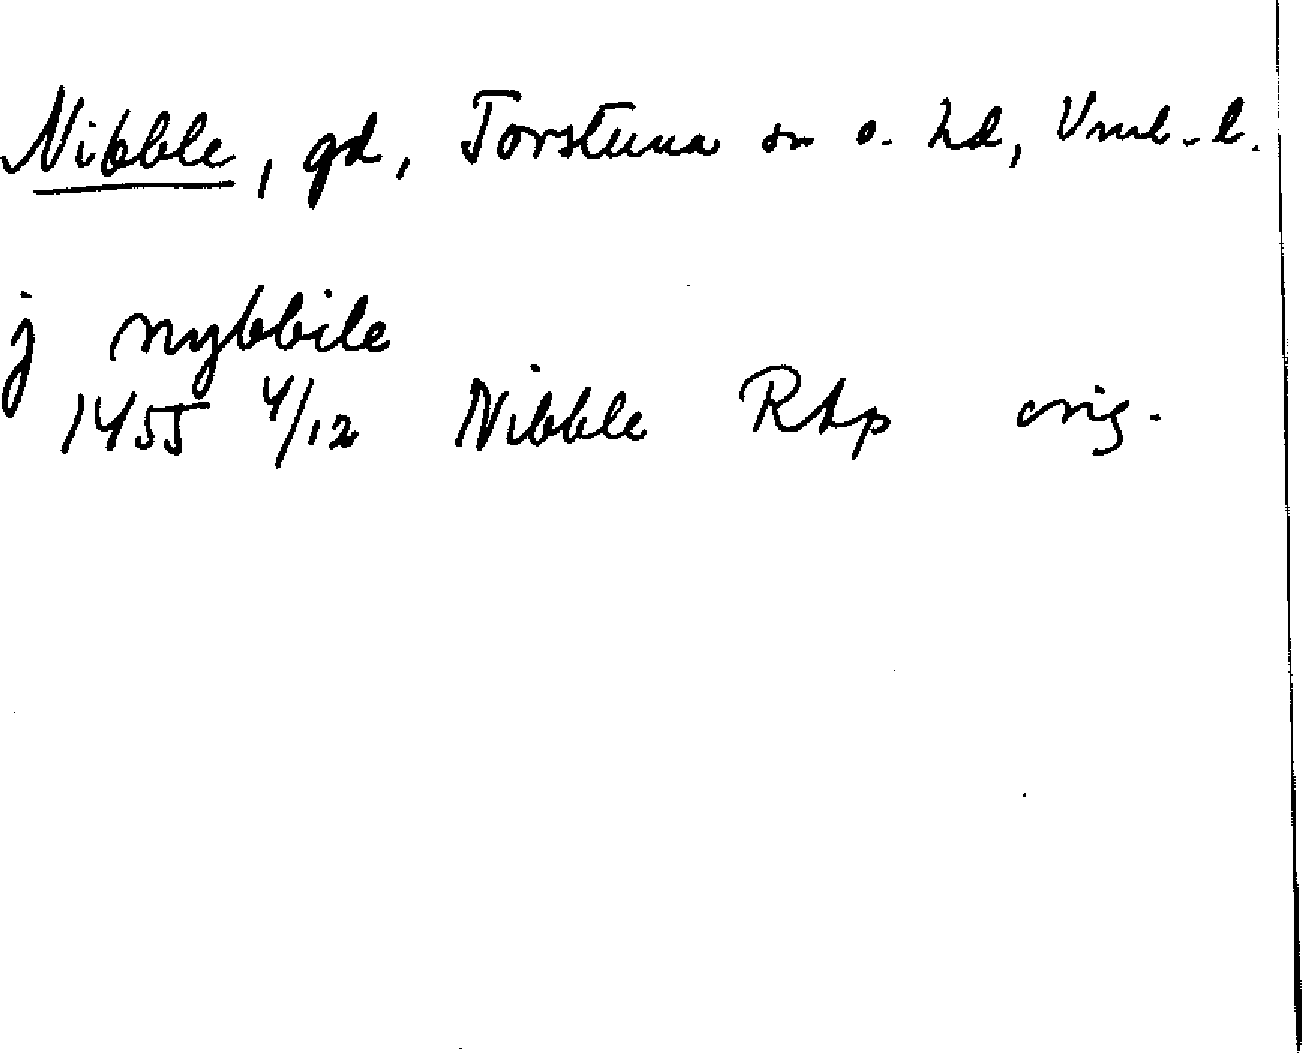 Nibble, gd, Torstuna sn o. hd, Vml. l.
j nybbile
1455 4/12 Nibble Rhp orig.